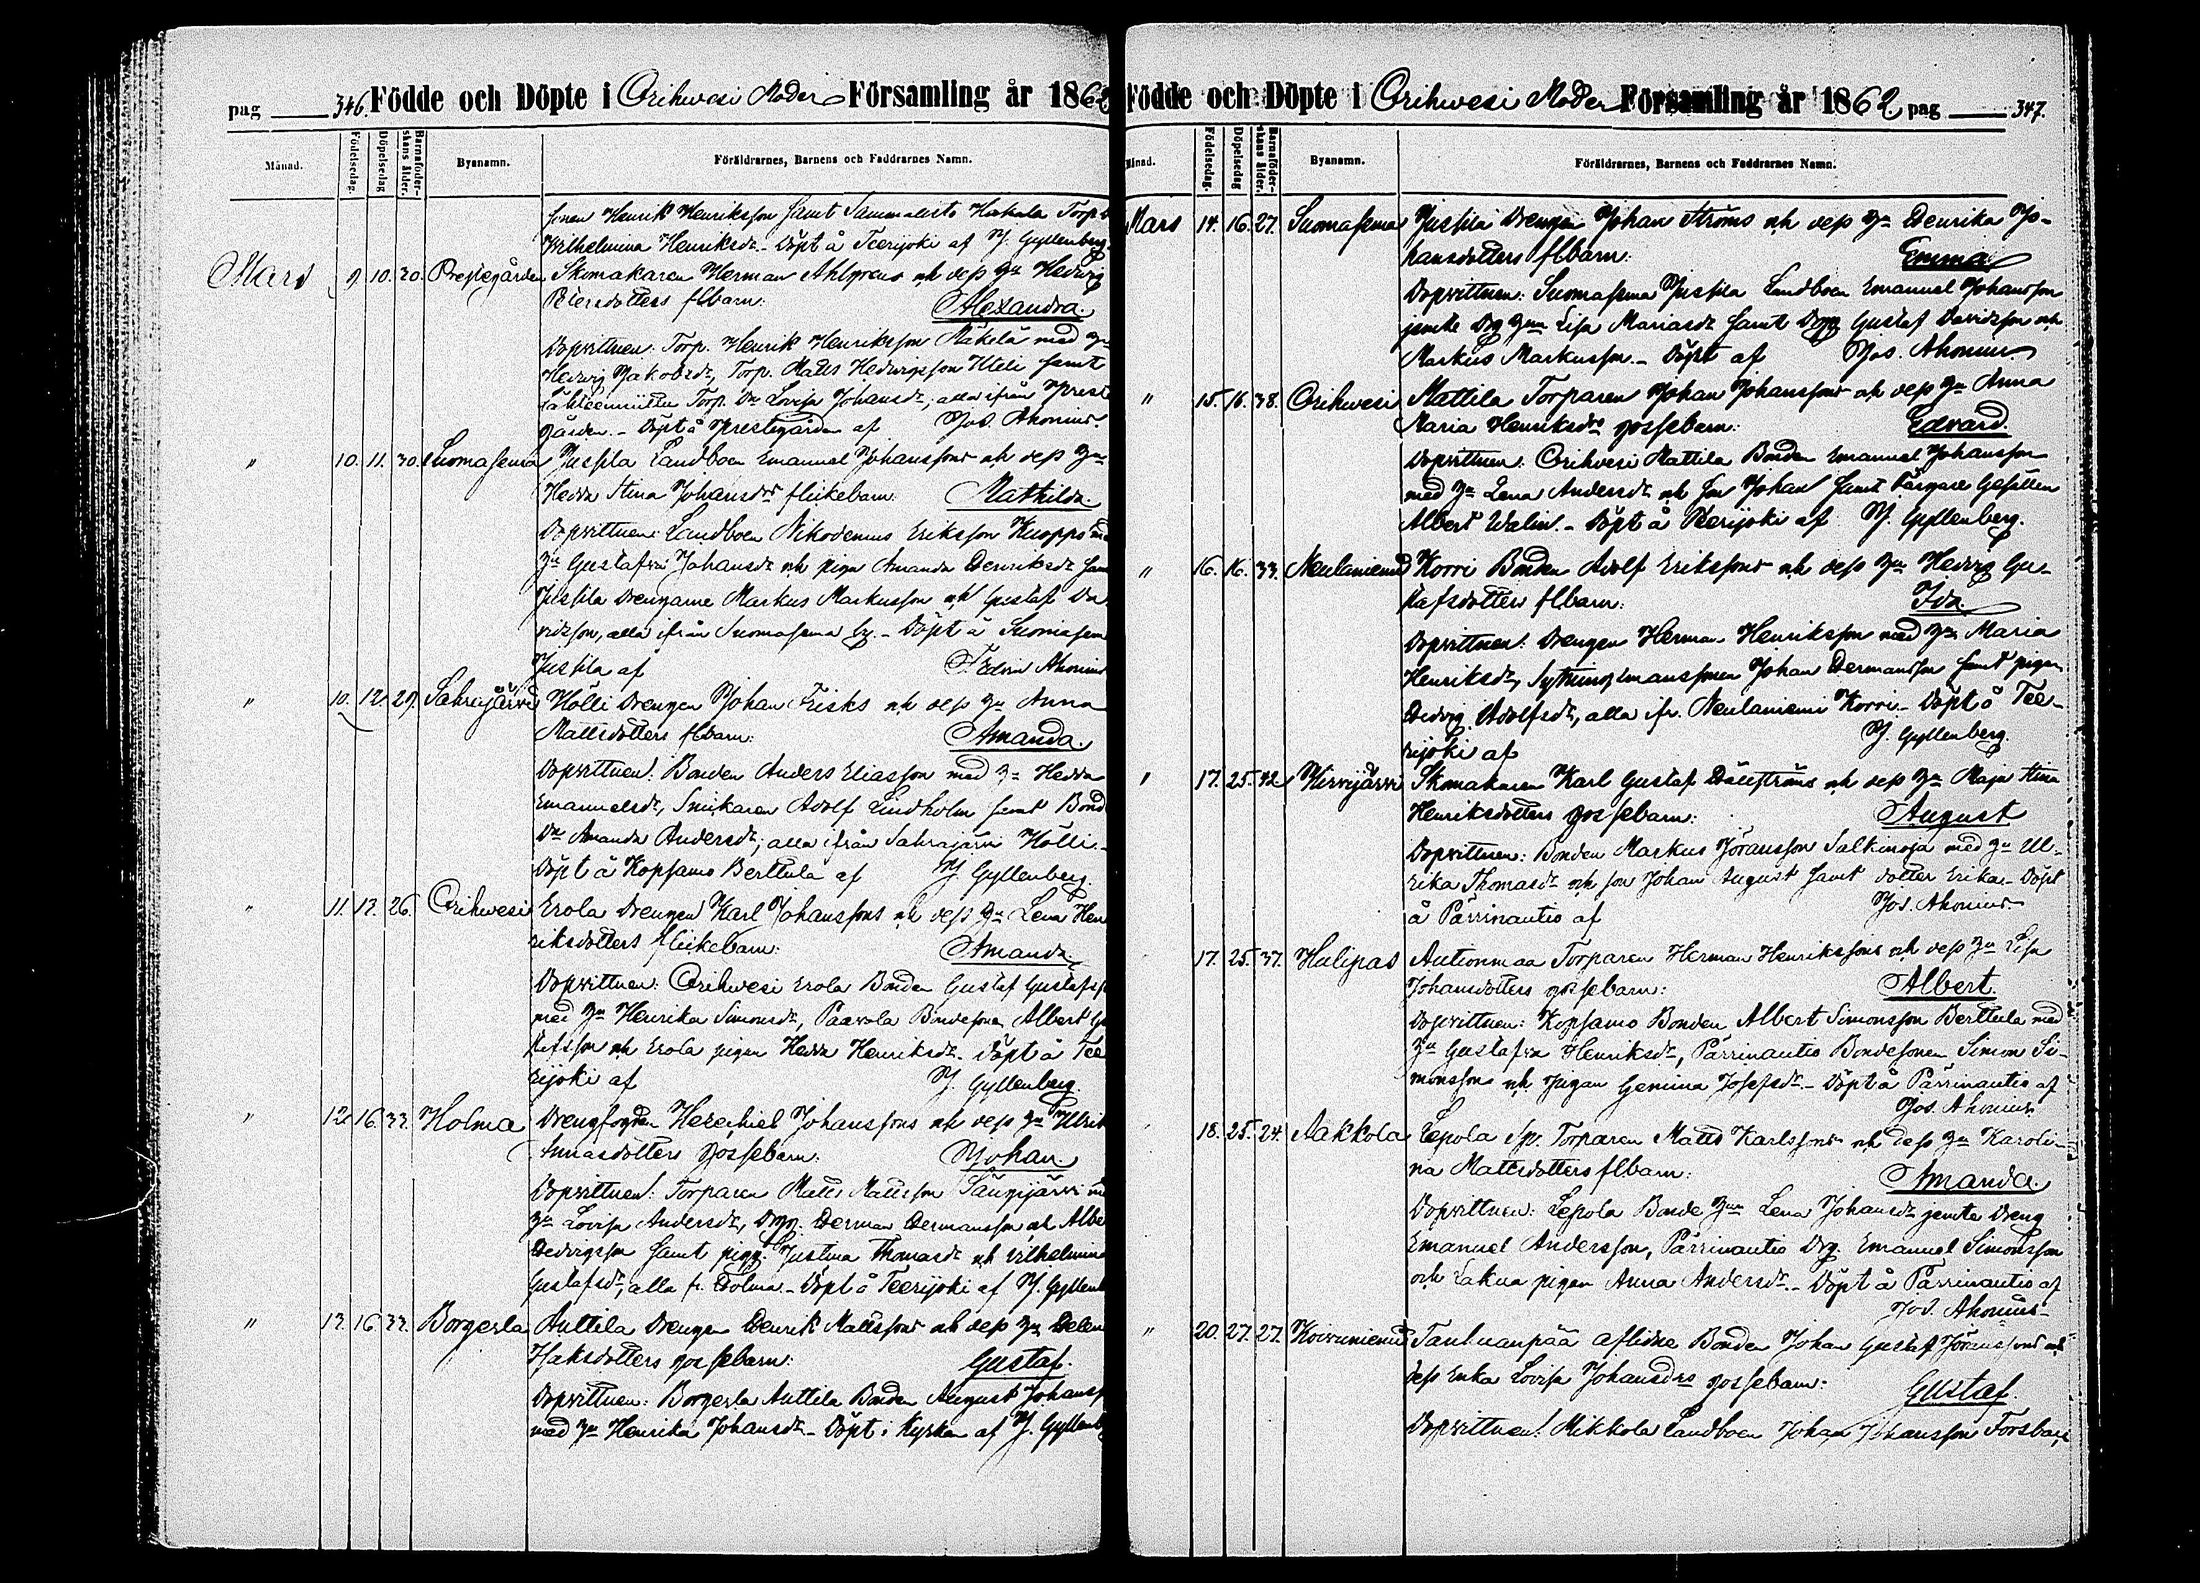 pag 346. Födde och Döpte i Orihwesi Moder Församling år 1862
Månad. Födelsedag. Döpelsedag Barnaföderskans ålder. Byanamn. Föräldrarnes, Barnens och Faddrarnes Namn.
sonen Henrik Henriksson samt Sammalisto Hakala Torp
Wilhelmina Henriksdr - Döpt å Teerijoki af J. Gyllenberg
Mars 9. 10. 30. Prestegården Skomakaren Herman Ahlgrens och dess hu Hedvig
Petersdotters flbarn: Alexandra.
Dopvittnen: Torp. Henrik Henriksson Mäkelä med hu
Hedvig Jakobsdr, Torp. Matts Hedvigsson Uteli samt
Torp. Dr Lovisa Johansdr, alla ifrån Preste
gården. - Döpt å Prestegården af Jos. Ahonius.
" 10. 11. 30. Suomasema Jussila Landboen Emanuel Johanssons och dess hu
Hedda Stina Johansdrs flickebarn: Mathilda.
Dopvittnen: Landboen Nikodemus Eriksson Kuoppi
hu Gustafva Johansdr och pigan Amanda Henriksdr
Jussila Drengarne Markus Markusson och Gustaf Da
vidsson, alla ifrån Suomasema by. - Döpt å Suomasem
Jussila af Fr. Edvin Ahonius
" 10. 12. 29. Sahrajärvi Hölli Drengen Johan Frisks och dess hu Anna
Mattsdotters flbarn: Amanda.
Dopvittnen: Bonden Anders Eliasson med hu Hedda
Emanuelsdr, Snickaren Adolf Lindholm samt Bond
Dr Amanda Andersdr; alla ifrån Sahrajärvi Hölli. -
Döpt å Kopsamo Berttula af J. Gyllenberg.
" 11. 12. 26. Orihwesi Erola Drengen Karl Johanssons och dess hu Lena Hen
riksdotters flickebarn: Amanda.
Dopvittnen: Orihwesi Erola Bonden Gustaf Gustafss
med hu Henrika Simonsdr, Paavola Bondesonen Albert
och Erola pigan Hedda Henriksdr. Döpt å Tee
rijoki af J. Gyllenberg.
" 12. 16. 33. Holma Drengfogden Hezechiel Johanssons och dess hu Ulrik
Annasdotters gossebarn: Johan.
Dopvittnen: Torparen Matts Mattsson Säynijärvi
hu Lovisa Andersdr, Drgg. Herman Hermansson och Albe
Hedvigsson samt pigg. Justina Thomasdr och Vilhelmina
Gustafsdr, alla fr. Holma. - Döpt å Teerijoki af J. Gyllenb
" 13. 16. 33. Borgerla Anttila Drengen Henrik Mattssons och dess hu Helen
Isaksdotters gossebarn: Gustaf.
Dopvittnen: Borgerla Anttila Bonden August Johanss
med hu Henrika Johansdr - Döpt i Kyrkan af J. Gyllenb
Födde och Döpte i Orihwesi Moder Församling år 1862 pag 347.
Månad. Födelsedag. Döpelsedag Barnaföderskans ålder. Byanamn. Föräldrarnes, Barnens och Faddrarnes Namn.
Mars 14. 16. 27. Suomasema Jussila Drengen Johan Ströms och dess hu Henrika Jo-
hansdotters flbarn: Emma.
Dopvittnen: Suomasema Jussila Landboen Emanuel Johansson
jemte Drg hun Lisa Mariasdr samt Drgg Gustaf Davidsson och
Markus Markusson. - Döpt af Jos. Ahonius
" 15. 16. 38. Orihwesi Mattila Torparen Johan Johanssons och dess hu Anna
Maria Henriksdrs gossebarn: Edvard.
Dopvittnen: Orihwesi Mattila Bonden Emanuel Johansson
med hu Lena Andersdr och son Johan samt Färgare Gesällen
Albert Walin. - Döpt å Teerijoki af J. Gyllenberg.
" 16. 16. 33. Neulaniemi Korri Bonden Adolf Erikssons och dess hu Hedvig Gus-
tafsdotters flbarn: Ida.
Dopvittnen: Drengen Herman Henriksson med hu Maria
Henriksdr, Sytningsmanssonen Johan Hermansson samt pigan
Hedvig Adolfsdr, alla ifr. Neulaniemi Korri. - Döpt å Tee-
rijoki af J. Gyllenberg.
" 17. 25. 42 Hirvijärvi Skomakaren Karl Gustaf Hällströms och dess hu Maja Stina
Henriksdotters gossebarn: August
Dopvittnen: Bonden Markus Jöransson Salkinoja med hu Ul-
rika Thomasdr och son Johan August samt dotter Erika. - Döpt
å Pärrinautio af Jos. Ahonius.
17. 25. 37. Halipas Autionmaa Torparen Herman Henrikssons och dess hu Lisa
Johansdotters gossebarn: Albert.
Dopvittnen: Kopsamo Bonden Albert Simonsson Berttula med
hu Gustafva Henriksdr, Pärrinautio Bondesonen Simon Si-
monsson och pigan Gemina Josefsdr. - Döpt å Pärrinautio af
Jos. Ahonius.
18. 25. 24. Nakkola Lepola Sp. Torparen Matts Karlssons och dess hu Karoli-
na Mattsdotters flbarn: Amanda.
Dopvittnen: Lepola Bonde hun Lena Johansdr jemte Dreng
Emanuel Andersson, Pärrinautio Drg. Emanuel Simonsson
och Lakua pigan Anna Andersdr. - Döpt å Pärrinautio af
Jos. Ahonius.
" 20. 27. 27. Koivuniemi Tanhuanpää aflidne Bonden Johan Gustaf Jöranssons och
dess Enka Lovisa Johansdrs gossebarn: Gustaf.
Dopvittnen: Mikkola Landboen Johan Johansson Forsbac